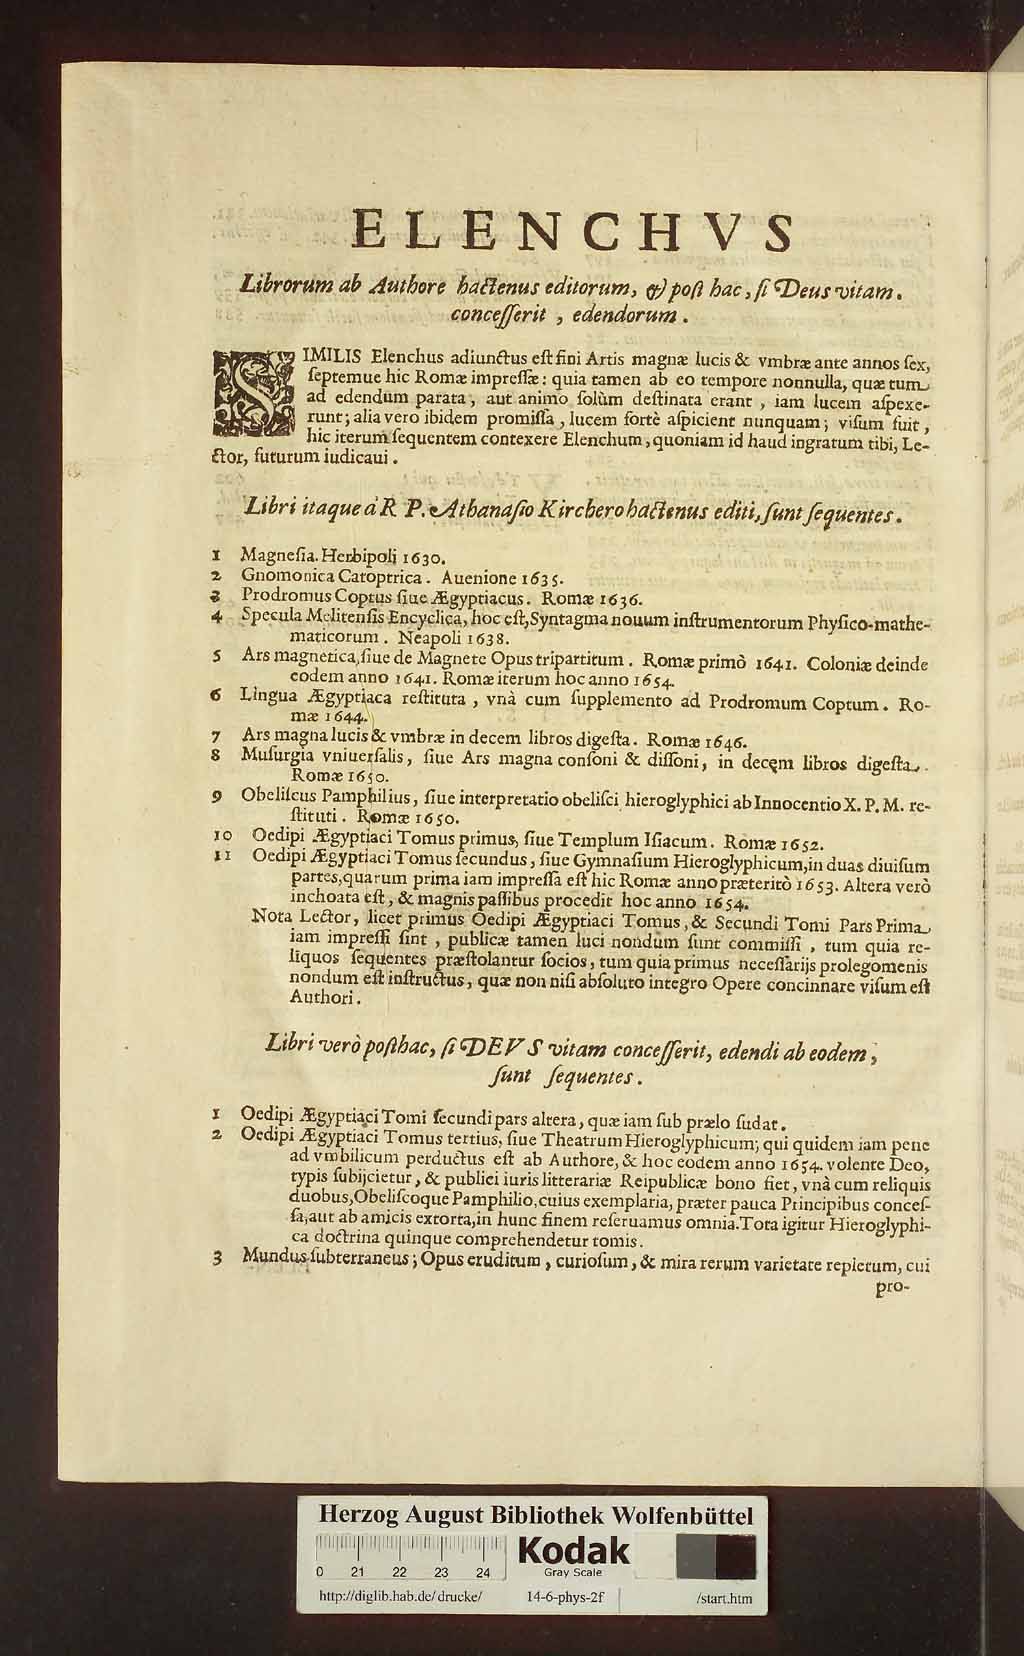 ELENCHVS
Librorum ab Authore hactenus editorum, & post hac, si Deus vitam.
concesserit, edendorum.
SIMILIS Elenchus adiunctus est fini Artis magnæ lucis & vmbræ ante annos sex,
septemue hic Romæ impressæ: quia tamen ab eo tempore nonnulla, quæ tum
ad edendum parata, aut animo solùm destinata erant, iam lucem aspexe-
runt; alia vero ibidem promissa, lucem fortè aspicient nunquam; visum fuit,
hic iterum sequentem contexere Elenchum, quoniam id haud ingratum tibi, Le-
ctor, futurum iudicaui.
Libri itaque à R P. Athanasio Kirchero hactenus editi, sunt sequentes.
1 Magnesia. Herbipoli 1630.
2 Gnomonica Catoptrica. Auenione 1635.
3 Prodromus Coptus siue Ægyptiacus. Romæ 1636.
4 Specula Melitensis Encyclica, hoc est, Syntagma nouum instrumentorum Physico-mathe-
maticorum. Neapoli 1638.
5 Ars magnetica, siue de Magnete Opus tripartitum. Romæ primò 1641. Coloniæ deinde
eodem anno 1641. Romæ iterum hoc anno 1654.
6 Lingua Ægyptiaca restituta, vnà cum supplemento ad Prodromum Coptum. Ro-
mæ 1644.
7 Ars magna lucis & vmbræ in decem libros digesta. Romæ 1646.
8 Musurgia vniuersalis, siue Ars magna consoni & dissoni, in decem libros digesta.
Romæ 1650.
9 Obeliscus Pamphilius, siue interpretatio obelisci hieroglyphici ab Innocentio X. P. M. re-
stituti. Romæ 1650.
10 Oedipi Ægyptiaci Tomus primus, siue Templum Isiacum. Romæ 1652.
11 Oedipi Ægyptiaci Tomus secundus, siue Gymnasium Hieroglyphicum, in duas diuisum
partes, quarum prima iam impressa est hic Romæ anno præteritò 1653. Altera verò
inchoata est, & magnis passibus procedit hoc anno 1654.
Nota Lector, licet primus Oedipi Ægyptiaci Tomus, & Secundi Tomi Pars Prima
iam impressi sint, publicæ tamen luci nondum sunt commissi, tum quia re-
liquos sequentes præstolantur socios, tum quia primus necessarijs prolegomenis
nondum est instructus, quæ non nisi absoluto integro Opere concinnare visum est
Authori.
Libri verò posthac, si DEVS vitam concesserit, edendi ab eodem,
sunt sequentes.
1 Oedipi Ægyptiaci Tomi secundi pars altera, quæ iam sub prælo sudat.
2 Oedipi Ægyptiaci Tomus tertius, siue Theatrum Hieroglyphicum; qui quidem iam pene
ad vmbilicum perductus est ab Authore, & hoc eodem anno 1654. volente Deo,
typis subijcietur, & publici iuris litterariæ Reipublicæ bono fiet, vnà cum reliquis
duobus, Obeliscoque Pamphilio, cuius exemplaria, præter pauca Principibus conces-
sa, aut ab amicis extorta, in hunc finem reseruamus omnia. Tota igitur Hieroglyphi-
ca doctrina quinque comprehendetur tomis.
3 Mundus subterraneus; Opus eruditum, curiosum, & mira rerum varietate repletum, cui
pro-
Herzog August Bibliothek Wolfenbüttel
0 21 22 23 24
Kodak
Gray Scale
http://diglib.hab.de/drucke/ 14-6-phys-2f /start.htm